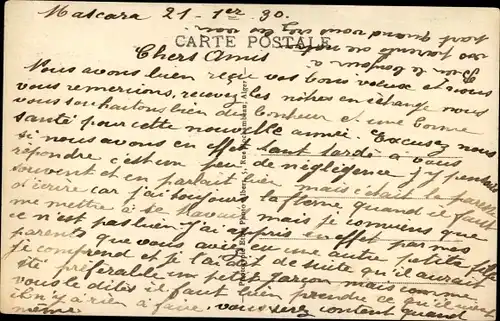 Mascara 21 - 1er 30.
CARTE POSTALE
Chers Amis
Nous avons bien reçu vos bons voeux et nous
vous remercions, recevez les nôtres en échange nous
vous souhaitons bien du bonheur et une bonne
santé pour cette nouvelle année. Excusez nous
si nous avons en effet tant tardé a vous
répondre c'est un peu de négligence j'y pensais
souvent et en parlait bien mais c'était la paresse
d'écrire car j'ai toujours la flème quand il faut
me mettre à se travail mais je conviens que
ce n'est pas bien j'ai appris en effet par mes
parents que vous aviez eu une autre petite fille
je comprend et je l'ai dit de suite qu'il aurait
été préférable un petit garçon mais comme
vous le dites il faut bien prendre ce qu'il vient
il n'y a rien à faire, vous serez content quand
même